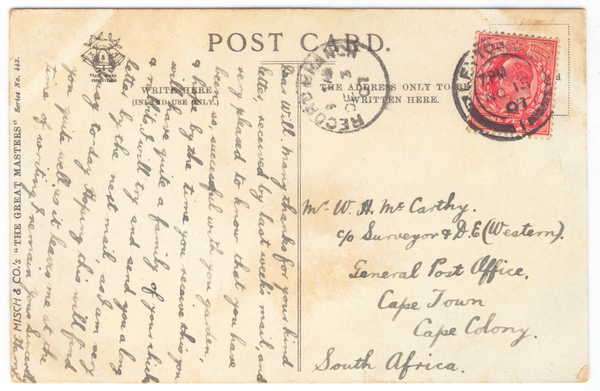 POST CARD.
WRITE HERE
(INLAND USE ONLY.)
THE ADDRESS ONLY TO BE
WRITTEN HERE.
MISCH & CO.'s "THE GREAT MASTERS" Series No. 443.
Dear Will, many thanks for your kind
letter, received by last week's mail, and
very pleased to know that you have
been so successful with your garden.
I hope by the time you receive this you
will have quite a family of your chicks
a month. I will try and send you a long
letter by the next mail, as I am very
busy today. Hoping this will find
you quite well as it leaves me at the
time of writing, I remain yours sincerely
RECORD
Mr W. H. McCarthy.
c/o Surveyor & D.E (Western).
General Post Office,
Cape Town
Cape Colony.
South Africa.